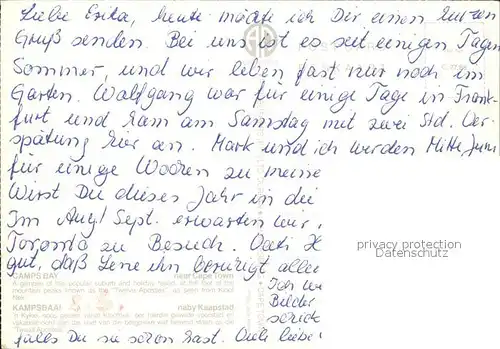 Liebe Erika, heute möchte ich Dir einen kurzen
Gruß senden. Bei uns ist es seit einigen Tagen
Sommer, und wir leben fast nur noch im
Garten. Wolfgang war für einige Tage in Frank-
furt und kam am Samstag mit zwei Std. Ver-
spätung hier an. Mark und ich werden Mitte Juni
für einige Wochen zu meine
Wirst Du dieses Jahr in die
Im Aug/Sept. erwarten wir
Toronto zu Besuch.
privacy protection
Datenschutz
gut, daß Lene ihn beruhigt allei
CAMPS BAY near Cape Town
A glimpse of this popular suburb and holiday resort, at the foot of the
mountains known as the "Twelve Apostles", as seen from Kloof
Nek.
Ich
Bilder
schick
KAMPSBAAI naby Kaapstad
falls Du sie schon hast. Viele liebe